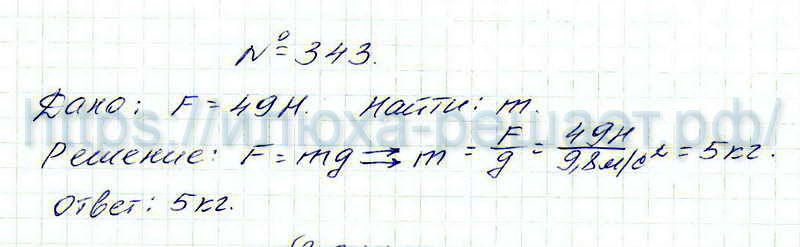 № 343.
Дано: F = 49Н. Найти: m.
https://илюха-решает.рф/
Решение: F = mg ⇒ m = F/g = 49Н/9,8м/с² = 5кг.
Ответ: 5кг.